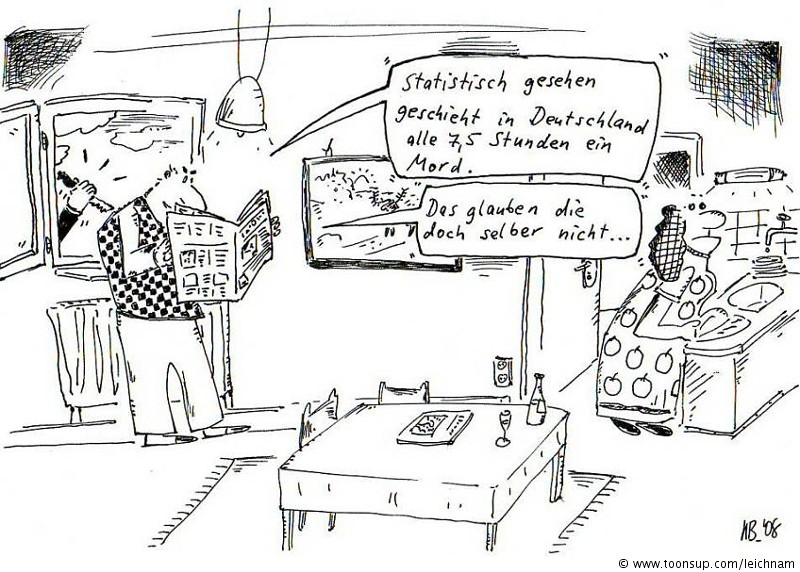 Statistisch gesehen
geschieht in Deutschland
alle 7,5 Stunden ein
Mord.
Das glauben die
doch selber nicht...
AB_'08
© www.toonsup.com/leichnam